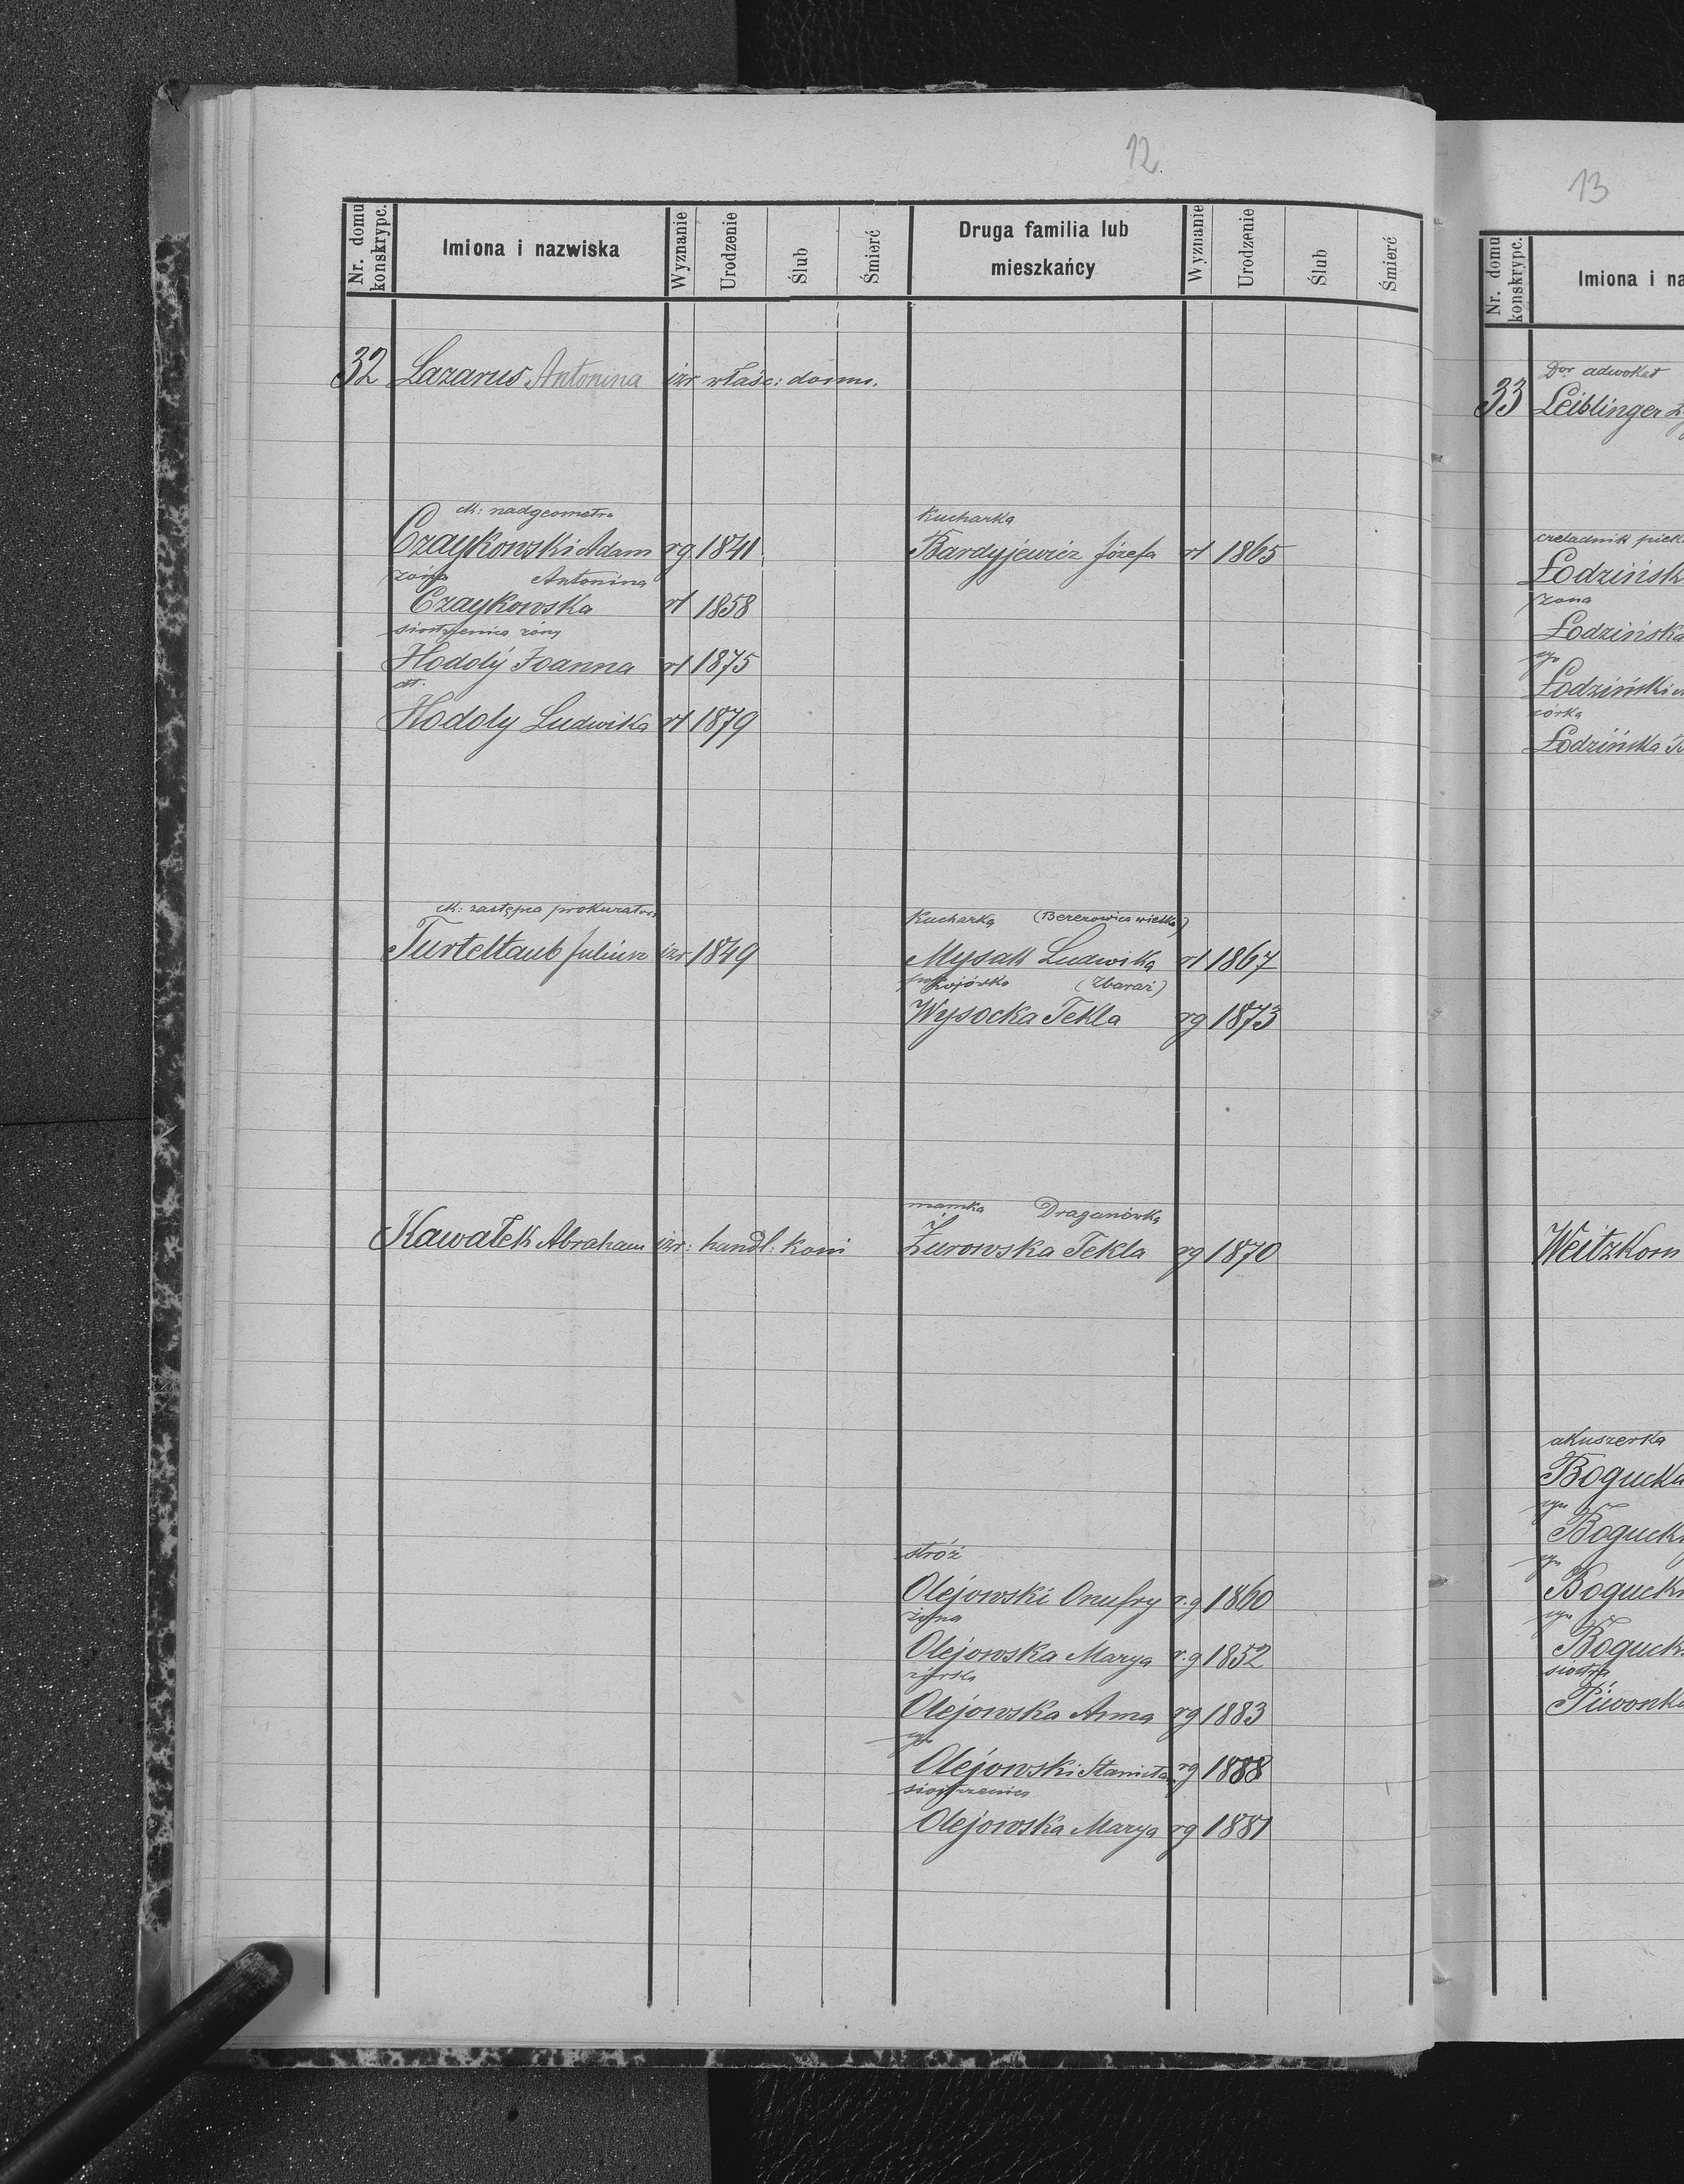 12
Nr. domu konskrypc.
Imiona i nazwiska
Wyznanie
Urodzenie
Ślub
Śmierć
Druga familia lub mieszkańcy
Wyznanie
Urodzenie
Ślub
Śmierć
32 Lazarus Antonina izr właśc: domu.
ck: nadgeometra
Czaykowski Adam rg 1841
żona Antonina
Czaykowska rł 1858
siostrzenica żony
Hodoly Joanna rł 1875
dt.
Hodoly Ludwika rł 1879
Kucharka
Bardyjewicz Józefa rł 1865
ck: zastępca prokuratora
Turteltaub Juliusz izr. 1849
Kucharka (Berezowica wielka)
Mysak Ludwika rł 1867
pokojówka (Zbaraż)
Wysocka Tekla rg 1873
Kawałek Abraham izr: handl: koni
mamka Draganówka
Żurowska Tekla rg 1870
stróż
Olejowski Onufry r.g 1860
żona
Olejowska Marya r.g 1852
córka
Olejowska Anna rg 1883
syn
Olejowski Stanisław rg 1888
siostrzenica
Olejowska Marya rg 1881
13
Nr. domu konskrypc.
Imiona i na
Dor adwokat
33 Leiblinger
czeladnik piek
Łodzińsk
żona
Łodzińska
syn
Łodziński
córka
Łodzińska
Weitzkorn
akuszerka
Bogucka
syn
Bogucki
syn
Bogucki
syn
Bogucki
siostra